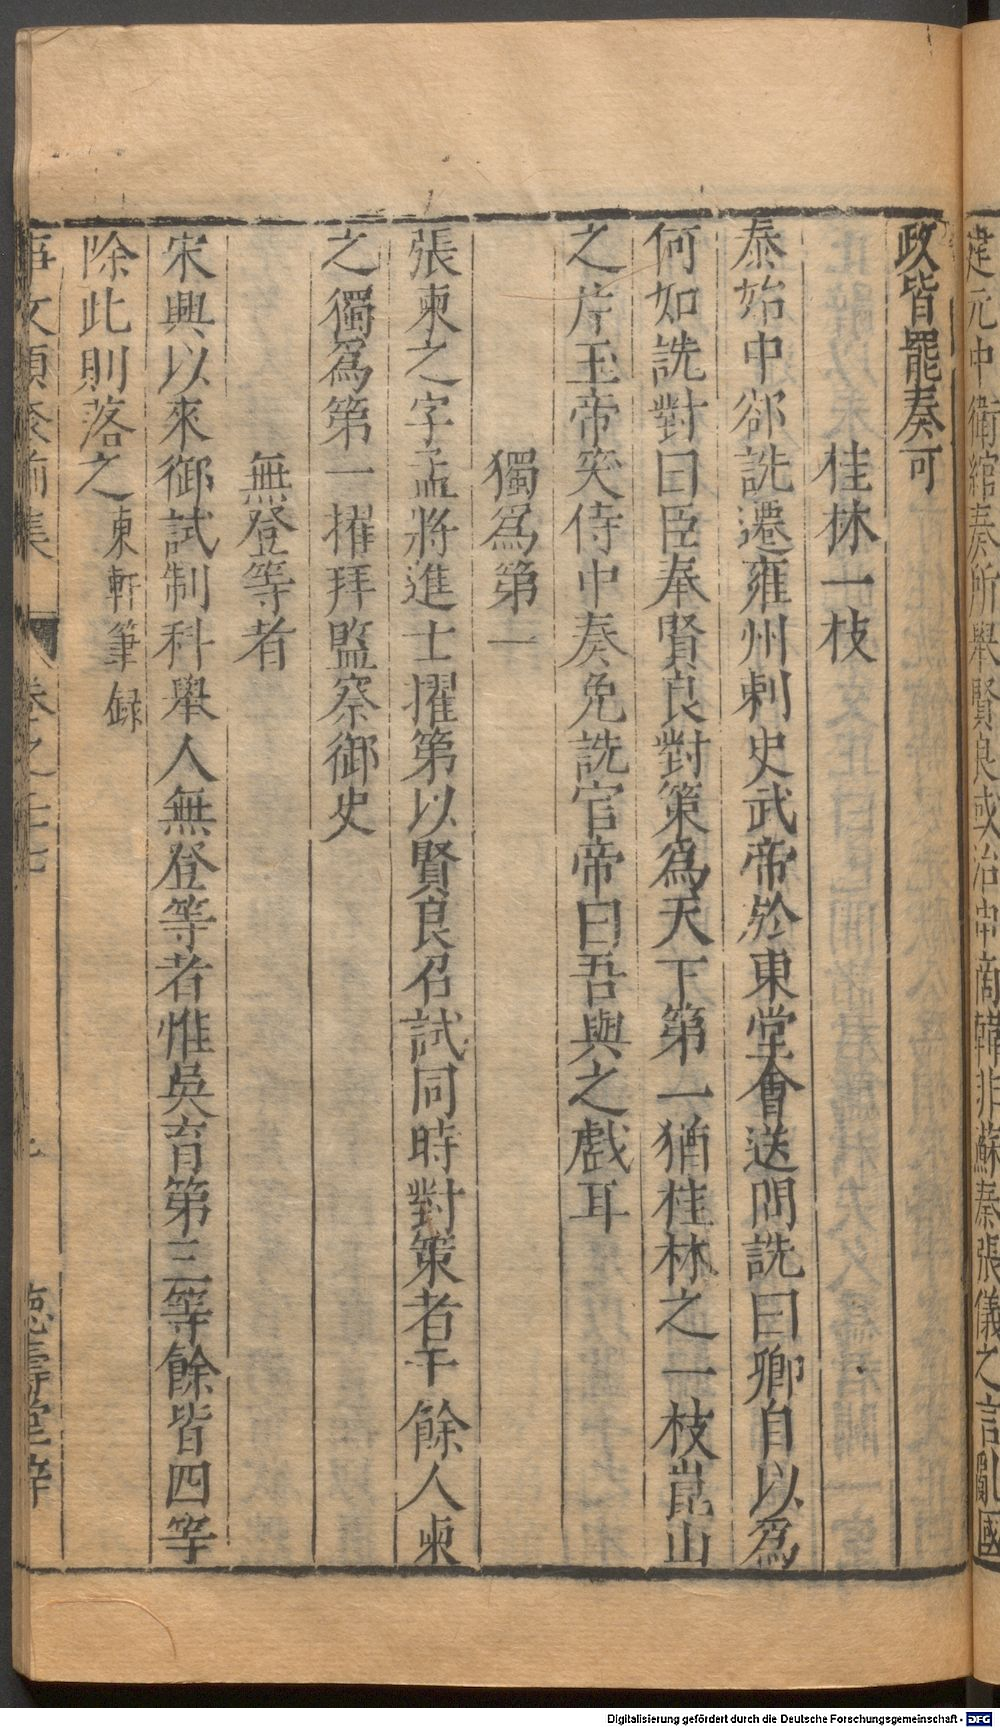 建元中衛綰奏所舉賢良或治申商韓非蘇秦張儀之言亂國
政皆罷奏可
桂林一枝
泰始中郤詵遷雍州剌史武帝於東堂會送問詵曰卿自以爲
何如詵對曰臣奉賢良對策爲天下第一猶桂林之一枝崑山
之片玉帝笑侍中奏免詵官帝曰吾與之戲耳
獨爲第一
張柬之字孟將進士擢第以賢良召試同時對策者千餘人柬
之獨爲第一擢拜監察御史
無登等者
宋興以來御試制科舉人無登等者惟吳育第三等餘皆四等
除此則落之東軒筆録
事文類聚前集 卷之二十七 德壽堂梓
Digitalisierung gefördert durch die Deutsche Forschungsgemeinschaft - DFG